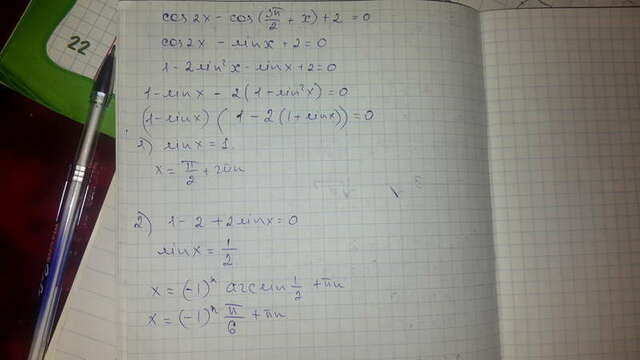 22
cos2x - cos(3π/2 + x) + 2 = 0
cos2x - sinx + 2 = 0
1 - 2sin²x - sinx + 2 = 0
1 - sinx - 2(1 - sin²x) = 0
(1 - sinx)(1 - 2(1 + sinx)) = 0
1) sinx = 1
x = π/2 + 2πn
2) 1 - 2 + 2sinx = 0
sinx = 1/2
x = (-1)ⁿ arcsin 1/2 + πn
x = (-1)ⁿ π/6 + πn